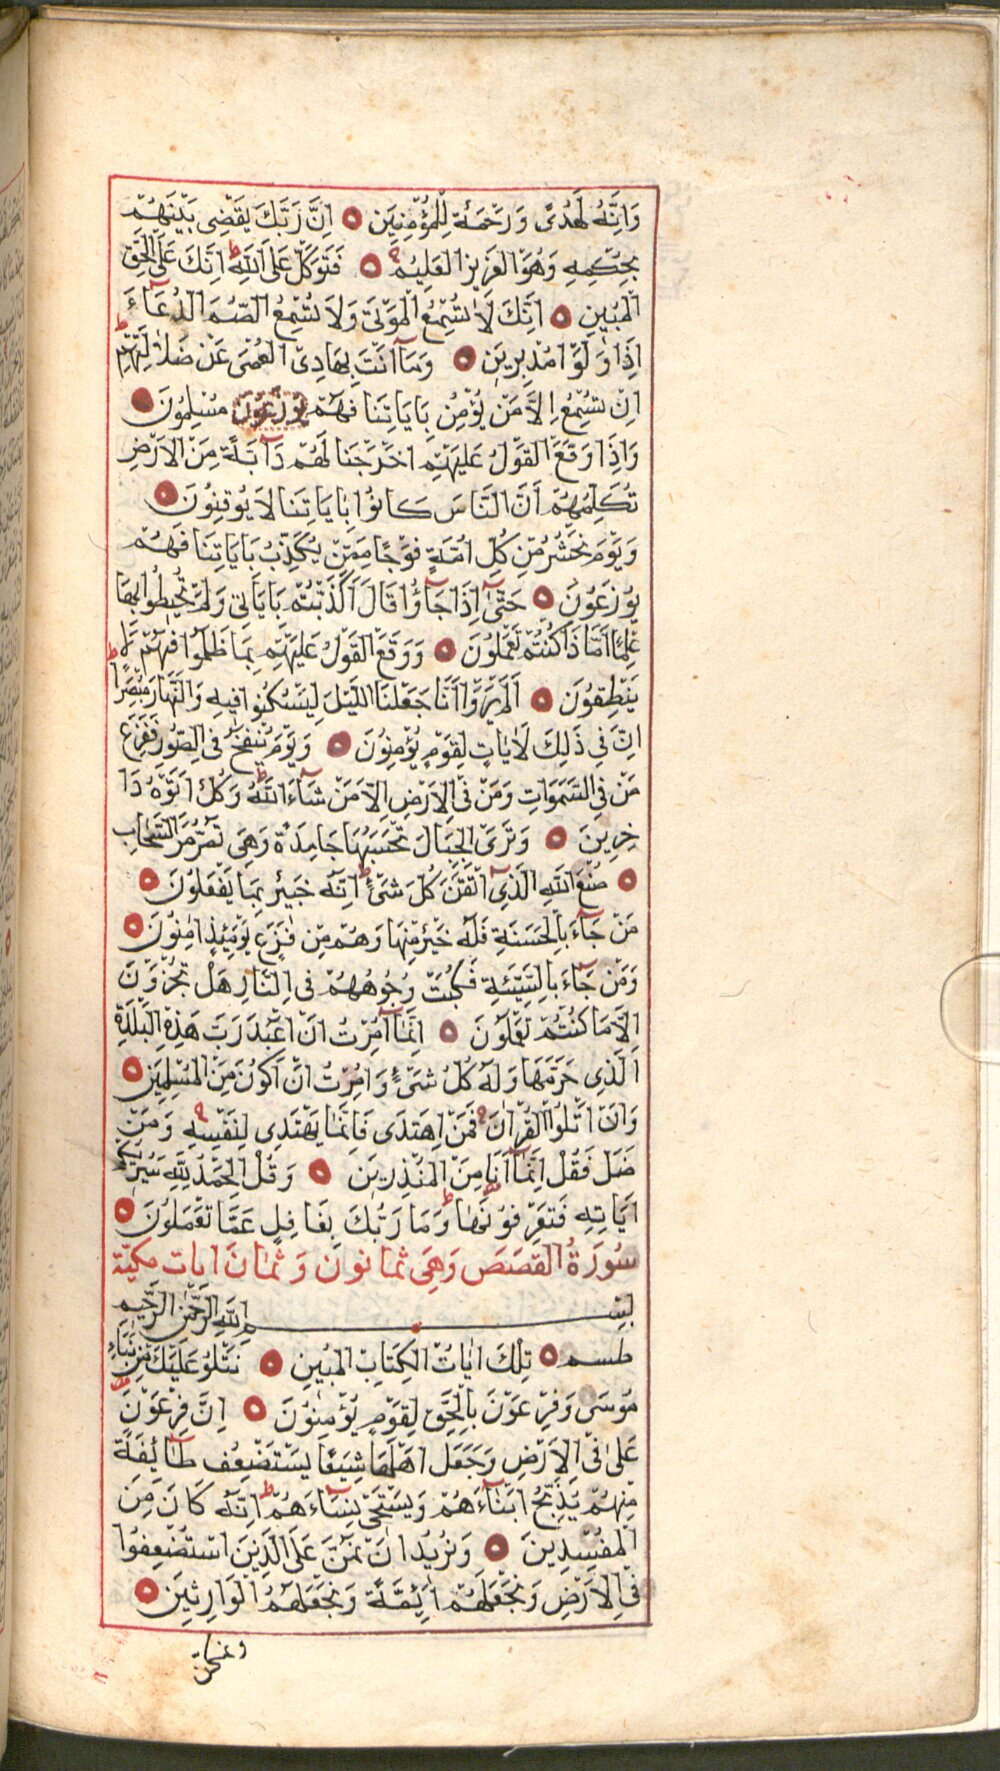 وَاِنَّهُ لَهُدًى وَرَحْمَةٌ لِلْمُؤْمِنِينَ اِنَّ رَبَّكَ يَقْضِى بَيْنَهُمْ
بِحُكْمِهِ وَهُوَ الْعَزِيزُ الْعَلِيمُ فَتَوَكَّلْ عَلَى اللّٰهِ اِنَّكَ عَلَى الْحَقِّ
الْمُبِينِ اِنَّكَ لَا تُسْمِعُ الْمَوْتَى وَلَا تُسْمِعُ الصُّمَّ الدُّعَآءَ
اِذَا وَلَّوْا مُدْبِرِينَ وَمَآ اَنْتَ بِهَادِى الْعُمْىِ عَنْ ضَلَالَتِهِمْ
اِنْ تُسْمِعُ اِلَّا مَنْ يُؤْمِنُ بِاٰيَاتِنَا فَهُمْ يُوزَعُونَ مُسْلِمُونَ
وَاِذَا وَقَعَ الْقَوْلُ عَلَيْهِمْ اَخْرَجْنَا لَهُمْ دَآبَّةً مِنَ الْاَرْضِ
تُكَلِّمُهُمْ اَنَّ النَّاسَ كَانُوا بِاٰيَاتِنَا لَا يُوقِنُونَ
وَيَوْمَ نَحْشُرُ مِنْ كُلِّ اُمَّةٍ فَوْجًا مِمَّنْ يُكَذِّبُ بِاٰيَاتِنَا فَهُمْ
يُوزَعُونَ حَتّٰى اِذَا جَآؤُا قَالَ اَكَذَّبْتُمْ بِاٰيَاتِى وَلَمْ تُحِيطُوا بِهَا
عِلْمًا اَمَّا ذَا كُنْتُمْ تَعْمَلُونَ وَوَقَعَ الْقَوْلُ عَلَيْهِمْ بِمَا ظَلَمُوا فَهُمْ لَا
يَنْطِقُونَ اَلَمْ يَرَوْا اَنَّا جَعَلْنَا اللَّيْلَ لِيَسْكُنُوا فِيهِ وَالنَّهَارَ مُبْصِرًا
اِنَّ فِى ذٰلِكَ لَاٰيَاتٍ لِقَوْمٍ يُؤْمِنُونَ وَيَوْمَ يُنْفَخُ فِى الصُّورِ فَفَزِعَ
مَنْ فِى السَّمٰوَاتِ وَمَنْ فِى الْاَرْضِ اِلَّا مَنْ شَآءَ اللّٰهُ وَكُلٌّ اَتَوْهُ دَا
خِرِينَ وَتَرَى الْجِبَالَ تَحْسَبُهَا جَامِدَةً وَهِىَ تَمُرُّ مَرَّ السَّحَابِ
صُنْعَ اللّٰهِ الَّذِى اَتْقَنَ كُلَّ شَىْءٍ اِنَّهُ خَبِيرٌ بِمَا يَفْعَلُونَ
مَنْ جَآءَ بِالْحَسَنَةِ فَلَهُ خَيْرٌ مِنْهَا وَهُمْ مِنْ فَزَعٍ يَوْمَئِذٍ اٰمِنُونَ
وَمَنْ جَآءَ بِالسَّيِّئَةِ فَكُبَّتْ وُجُوهُهُمْ فِى النَّارِ هَلْ تُجْزَوْنَ
اِلَّا مَا كُنْتُمْ تَعْمَلُونَ اِنَّمَآ اُمِرْتُ اَنْ اَعْبُدَ رَبَّ هَذِهِ الْبَلْدَةِ
الَّذِى حَرَّمَهَا وَلَهُ كُلُّ شَىْءٍ وَاُمِرْتُ اَنْ اَكُونَ مِنَ الْمُسْلِمِينَ
وَاَنْ اَتْلُوَا الْقُرْاٰنَ فَمَنِ اهْتَدَى فَاِنَّمَا يَهْتَدِى لِنَفْسِهِ وَمَنْ
ضَلَّ فَقُلْ اِنَّمَآ اَنَا مِنَ الْمُنْذِرِينَ وَقُلِ الْحَمْدُ لِلّٰهِ سَيُرِيكُمْ
اٰيَاتِهِ فَتَعْرِفُونَهَا وَمَا رَبُّكَ بِغَافِلٍ عَمَّا تَعْمَلُونَ
سُورَةُ الْقَصَصَ وَهِىَ ثمانونَ وَثمَانَ ايات مكيّة
بِسْمِ اللّٰهِ الرَّحْمٰنِ الرَّحِيمِ
طسم تِلْكَ اٰيَاتُ الْكِتَابِ الْمُبِينِ نَتْلُو عَلَيْكَ مِنْ نَبَاءِ
مُوسَى وَفِرْعَوْنَ بِالْحَقِّ لِقَوْمٍ يُؤْمِنُونَ اِنَّ فِرْعَوْنَ
عَلٰى فِى الْاَرْضِ وَجَعَلَ اَهْلَهَا شِيَعًا يَسْتَضْعِفُ طَآئِفَةً
مِنْهُمْ يُذَبِّحُ اَبْنَآءَهُمْ وَيَسْتَحْيِى نِسَآءَهُمْ اِنَّهُ كَانَ مِنَ
الْمُفْسِدِينَ وَنُرِيدُ اَنْ نَمُنَّ عَلَى الَّذِينَ اسْتُضْعِفُوا
فِى الْاَرْضِ وَنَجْعَلَهُمْ اَئِمَّةً وَنَجْعَلَهُمُ الْوَارِثِينَ
ونمكن